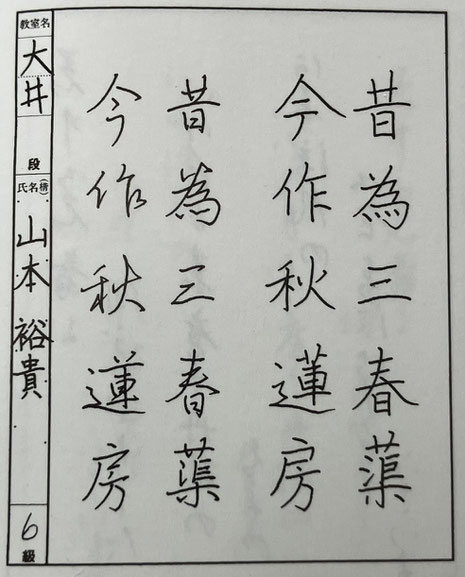 昔為三春蕖
今作秋蓮房
昔為三春蕖
今作秋蓮房
教室名
大井
段
氏名(楷)
山本裕貴
6級